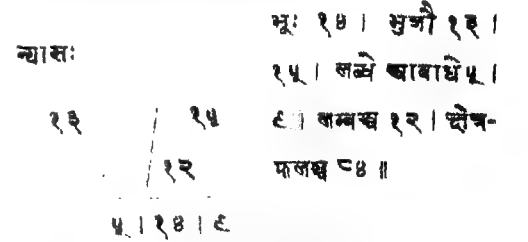 न्यासः
१३ १५
१२
५ । १४ । ९
भूः १४ । भुजौ १३ ।
१५ । लब्धे आबाधे ५ ।
९ । लम्बश्च १२ । क्षेत्र-
फलञ्च ८४ ॥